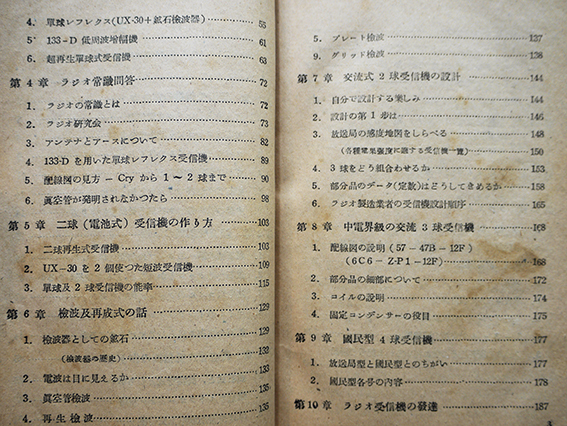 4. 單球レフレクス(UX-30+鉱石檢波器) 55
5. 133-D 低周波増幅機 61
6. 超再生單球式受信機 63
第4章 ラジオ常識問答 72
1. ラジオの常識とは 72
2. ラジオ研究会 73
3. アンテナとアースについて 82
4. 133-D を用いた單球レフレクス受信機 89
5. 配線図の見方－Cry から 1～2 球まで 90
6. 眞空管が発明されなかつたら 98
第5章 二球(電池式)受信機の作り方 103
1. 二球再生式受信機 103
2. UX-30 を 2 個使つた短波受信機 109
3. 單球及 2 球受信機の能率 115
第6章 檢波及再成式の話 129
1. 檢波器としての鉱石 129
(檢波器の歴史) 133
2. 電波は目に見えるか 133
3. 眞空管檢波 135
4. 再生檢波 135
5. プレート檢波 137
9. グリッド檢波 138
第7章 交流式2球受信機の設計 144
1. 自分で設計する楽しみ 144
2. 設計の第1步は 146
3. 放送局の感度地図をしらべる 148
150
4. 3球をどう組合わせるか 153
5. 部分品のデータ(定数)はどうしてきめるか 158
6. ラジオ製造業者の受信機設計順序 165
第8章 中電界級の交流3球受信機 168
1. 配線図の説明 (57-47B-12F)
(6C6-Z-P1-12F) 168
2. 部分品の細部について 172
3. コイルの説明 174
4. 固定コンデンサーの役目 175
第9章 國民型4球受信機 177
1. 放送局型と國民型とのちがい 177
2. 國民型各号の内容 178
第10章 ラジオ受信機の發達 187